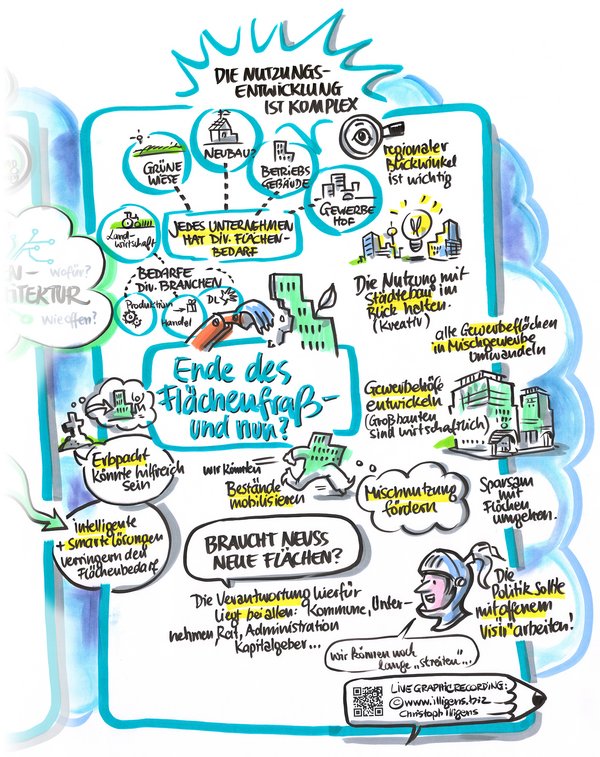 DIE NUTZUNGS-
ENTWICKLUNG
IST KOMPLEX
GRÜNE
WIESE
NEUBAU?
BETRIEBS
GEBÄUDE
GEWERBE
HOF
regionaler
Blickwinkel
ist wichtig
JEDES UNTERNEHMEN
HAT DIV. FLÄCHEN-
BEDARF
Land-
wirtschaft
BEDARFE
DIV. BRANCHEN
Produktion
Handel
DL
wofür?
wie offen?
Die Nutzung mit
Städtebau im
Blick halten.
(Kreativ)
alle Gewerbeflächen
in Mischgewerbe
umwandeln
Ende des
Flächenfraß-
und nun?
Gewerbehöfe
entwickeln
(Großbauten
sind wirtschaftlich)
Erbpacht
könnte hilfreich
sein
wir könnten
Bestände
mobilisieren
Mischnutzung
fördern
Sparsam
mit
Flächen
umgehen.
intelligente
+ smarte Lösungen
verringern den
Flächenbedarf
BRAUCHT NEUSS
NEUE FLÄCHEN?
Die Verantwortung hierfür
liegt bei allen: Kommune, Unter-
nehmen, Rat, Administration
Kapitalgeber...
Die
Politik sollte
mit offenem
"Visir" arbeiten!
wir können noch
lange "streiten"...
LIVE GRAPHICRECORDING:
©www.illigens.biz
Christoph Illigens